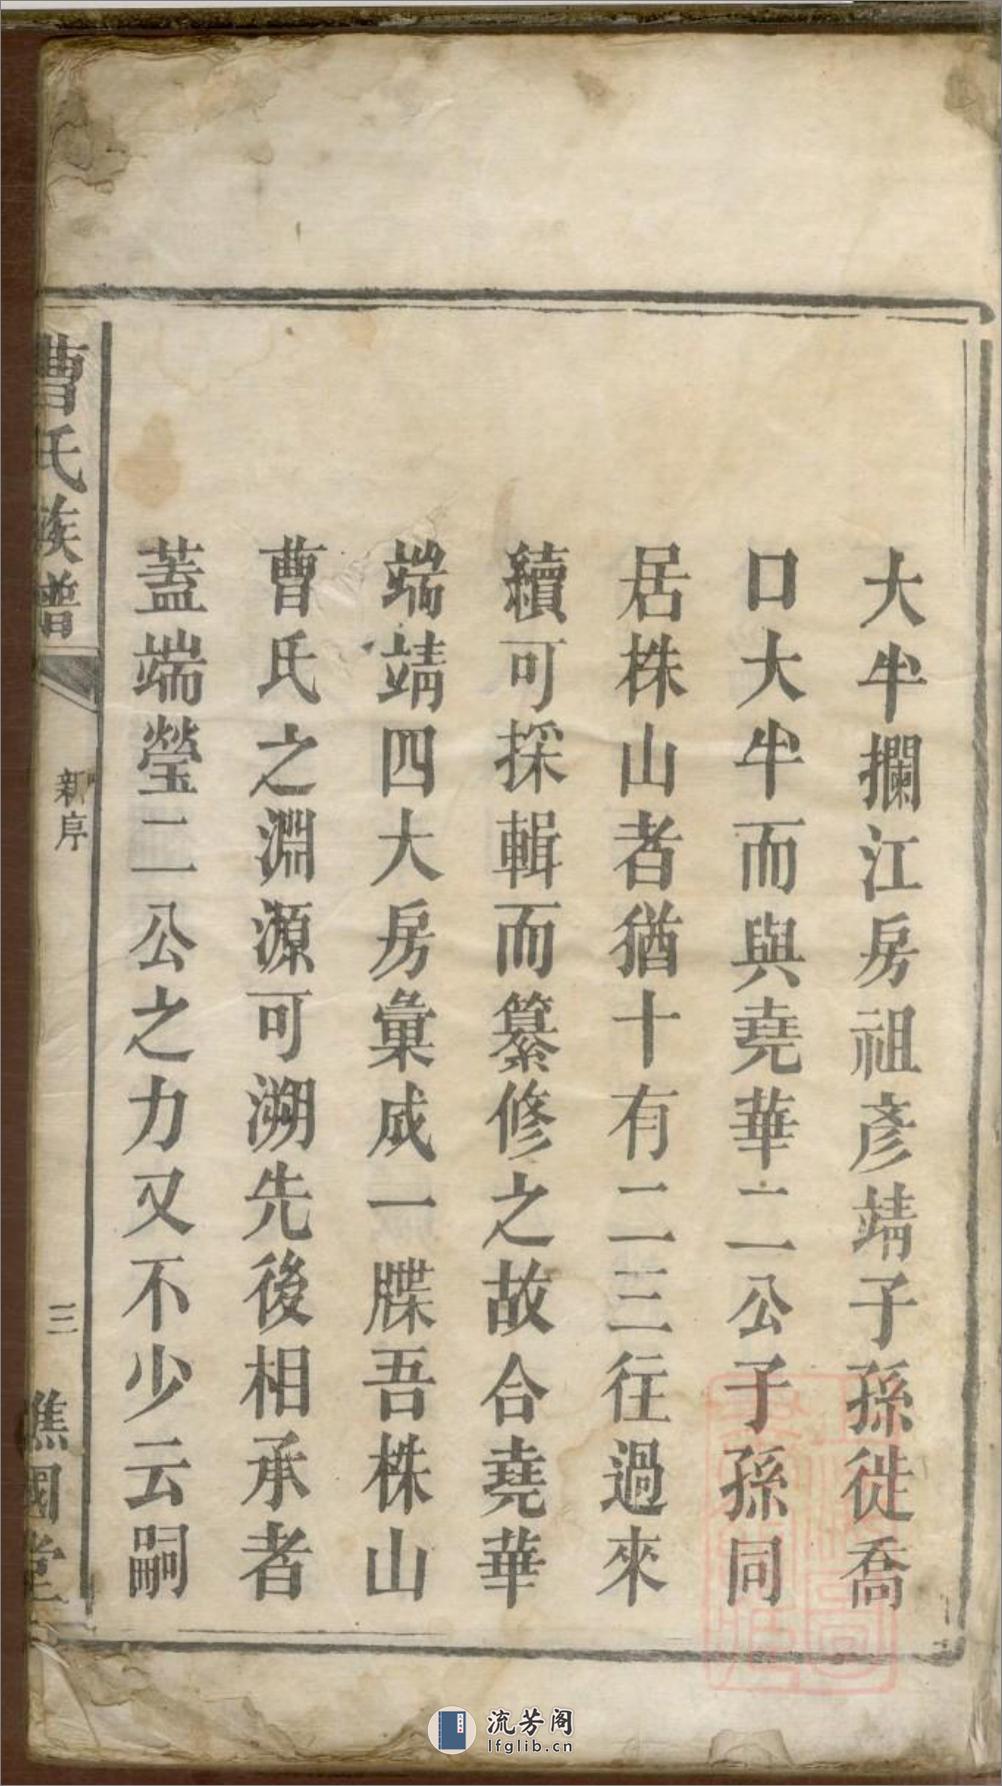 大半攔江房祖彥靖子孫徙喬
口大半而與堯華二公子孫同
居株山者猶十有二三往過來
續可採輯而纂修之故合堯華
端靖四大房彙成一牒吾株山
曹氏之淵源可溯先後相承者
蓋端瑩二公之力又不少云嗣
曹氏族譜
新序
三
譙國堂
流芳阁
lfglib.cn